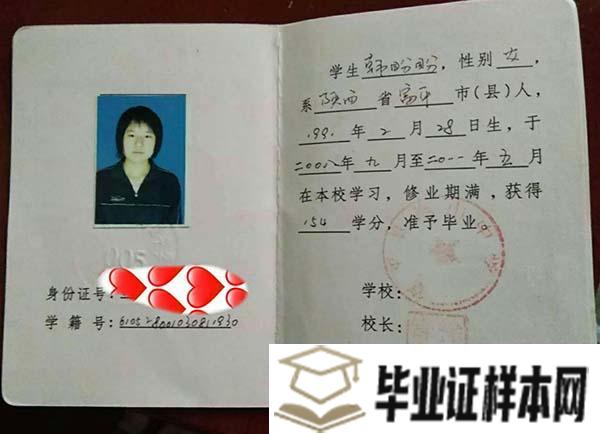 005
身份证号:
学籍号:610528001030811930
学生韩盼盼,性别女,
系陕西省富平市(县)人,
1991年2月28日生,于
二〇〇八年九月至二〇一一年五月
在本校学习,修业期满,获得
154学分,准予毕业。
学校:
校长
毕业证样本网